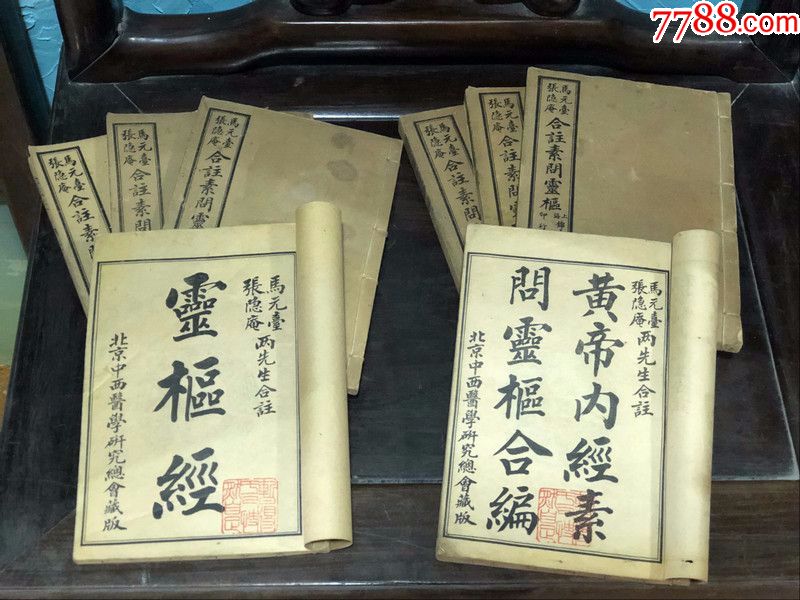 7788.com
馬元臺
張隐庵
合註素問
馬元臺
張隐庵
合註素問
馬元臺
張隐庵
合註素問靈
馬元臺
張隐庵
合註素問靈
馬元臺
張隐庵
合註素問
馬元臺
張隐庵
合註素問靈樞
印行
馬元臺
張隐庵
两先生合註
靈樞經
北京中西醫學硏究總會藏版
馬元臺
張隐庵
两先生合註
黄帝内經素
問靈樞合編
北京中西醫學硏究總會藏版